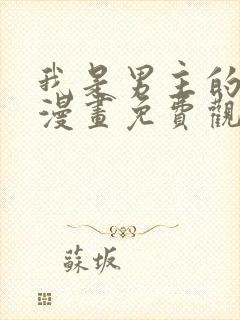 我是男主的
漫畫免費觀
蘇坂